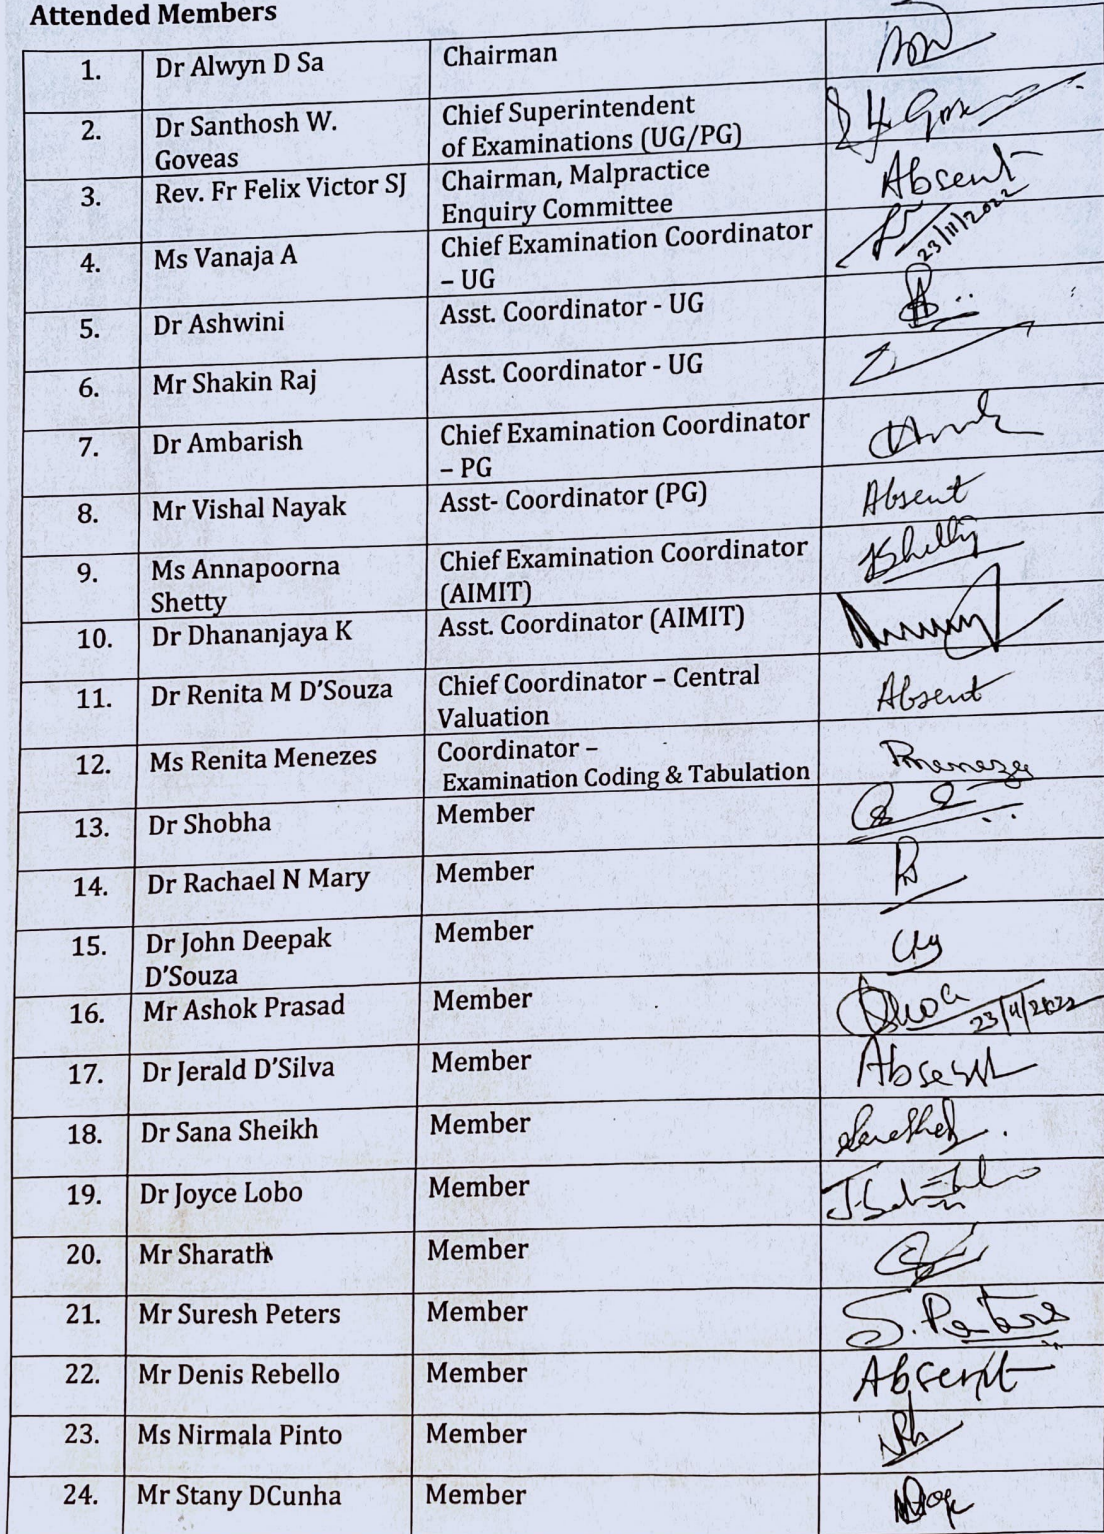 Attended Members
1. Dr Alwyn D Sa Chairman
2. Dr Santhosh W. Goveas Chief Superintendent
of Examinations (UG/PG)
3. Rev. Fr Felix Victor SJ Chairman, Malpractice
Enquiry Committee Absent
4. Ms Vanaja A Chief Examination Coordinator
– UG 23/11/2022
5. Dr Ashwini Asst. Coordinator - UG
6. Mr Shakin Raj Asst. Coordinator - UG
7. Dr Ambarish Chief Examination Coordinator
– PG
8. Mr Vishal Nayak Asst- Coordinator (PG) Absent
9. Ms Annapoorna Shetty Chief Examination Coordinator
(AIMIT) Shetty
10. Dr Dhananjaya K Asst. Coordinator (AIMIT)
11. Dr Renita M D'Souza Chief Coordinator – Central
Valuation Absent
12. Ms Renita Menezes Coordinator –
Examination Coding & Tabulation Rmenezes
13. Dr Shobha Member
14. Dr Rachael N Mary Member
15. Dr John Deepak D'Souza Member
16. Mr Ashok Prasad Member 23/11/2022
17. Dr Jerald D'Silva Member Absent
18. Dr Sana Sheikh Member
19. Dr Joyce Lobo Member
20. Mr Sharath Member
21. Mr Suresh Peters Member S. Peters
22. Mr Denis Rebello Member Absent
23. Ms Nirmala Pinto Member
24. Mr Stany DCunha Member